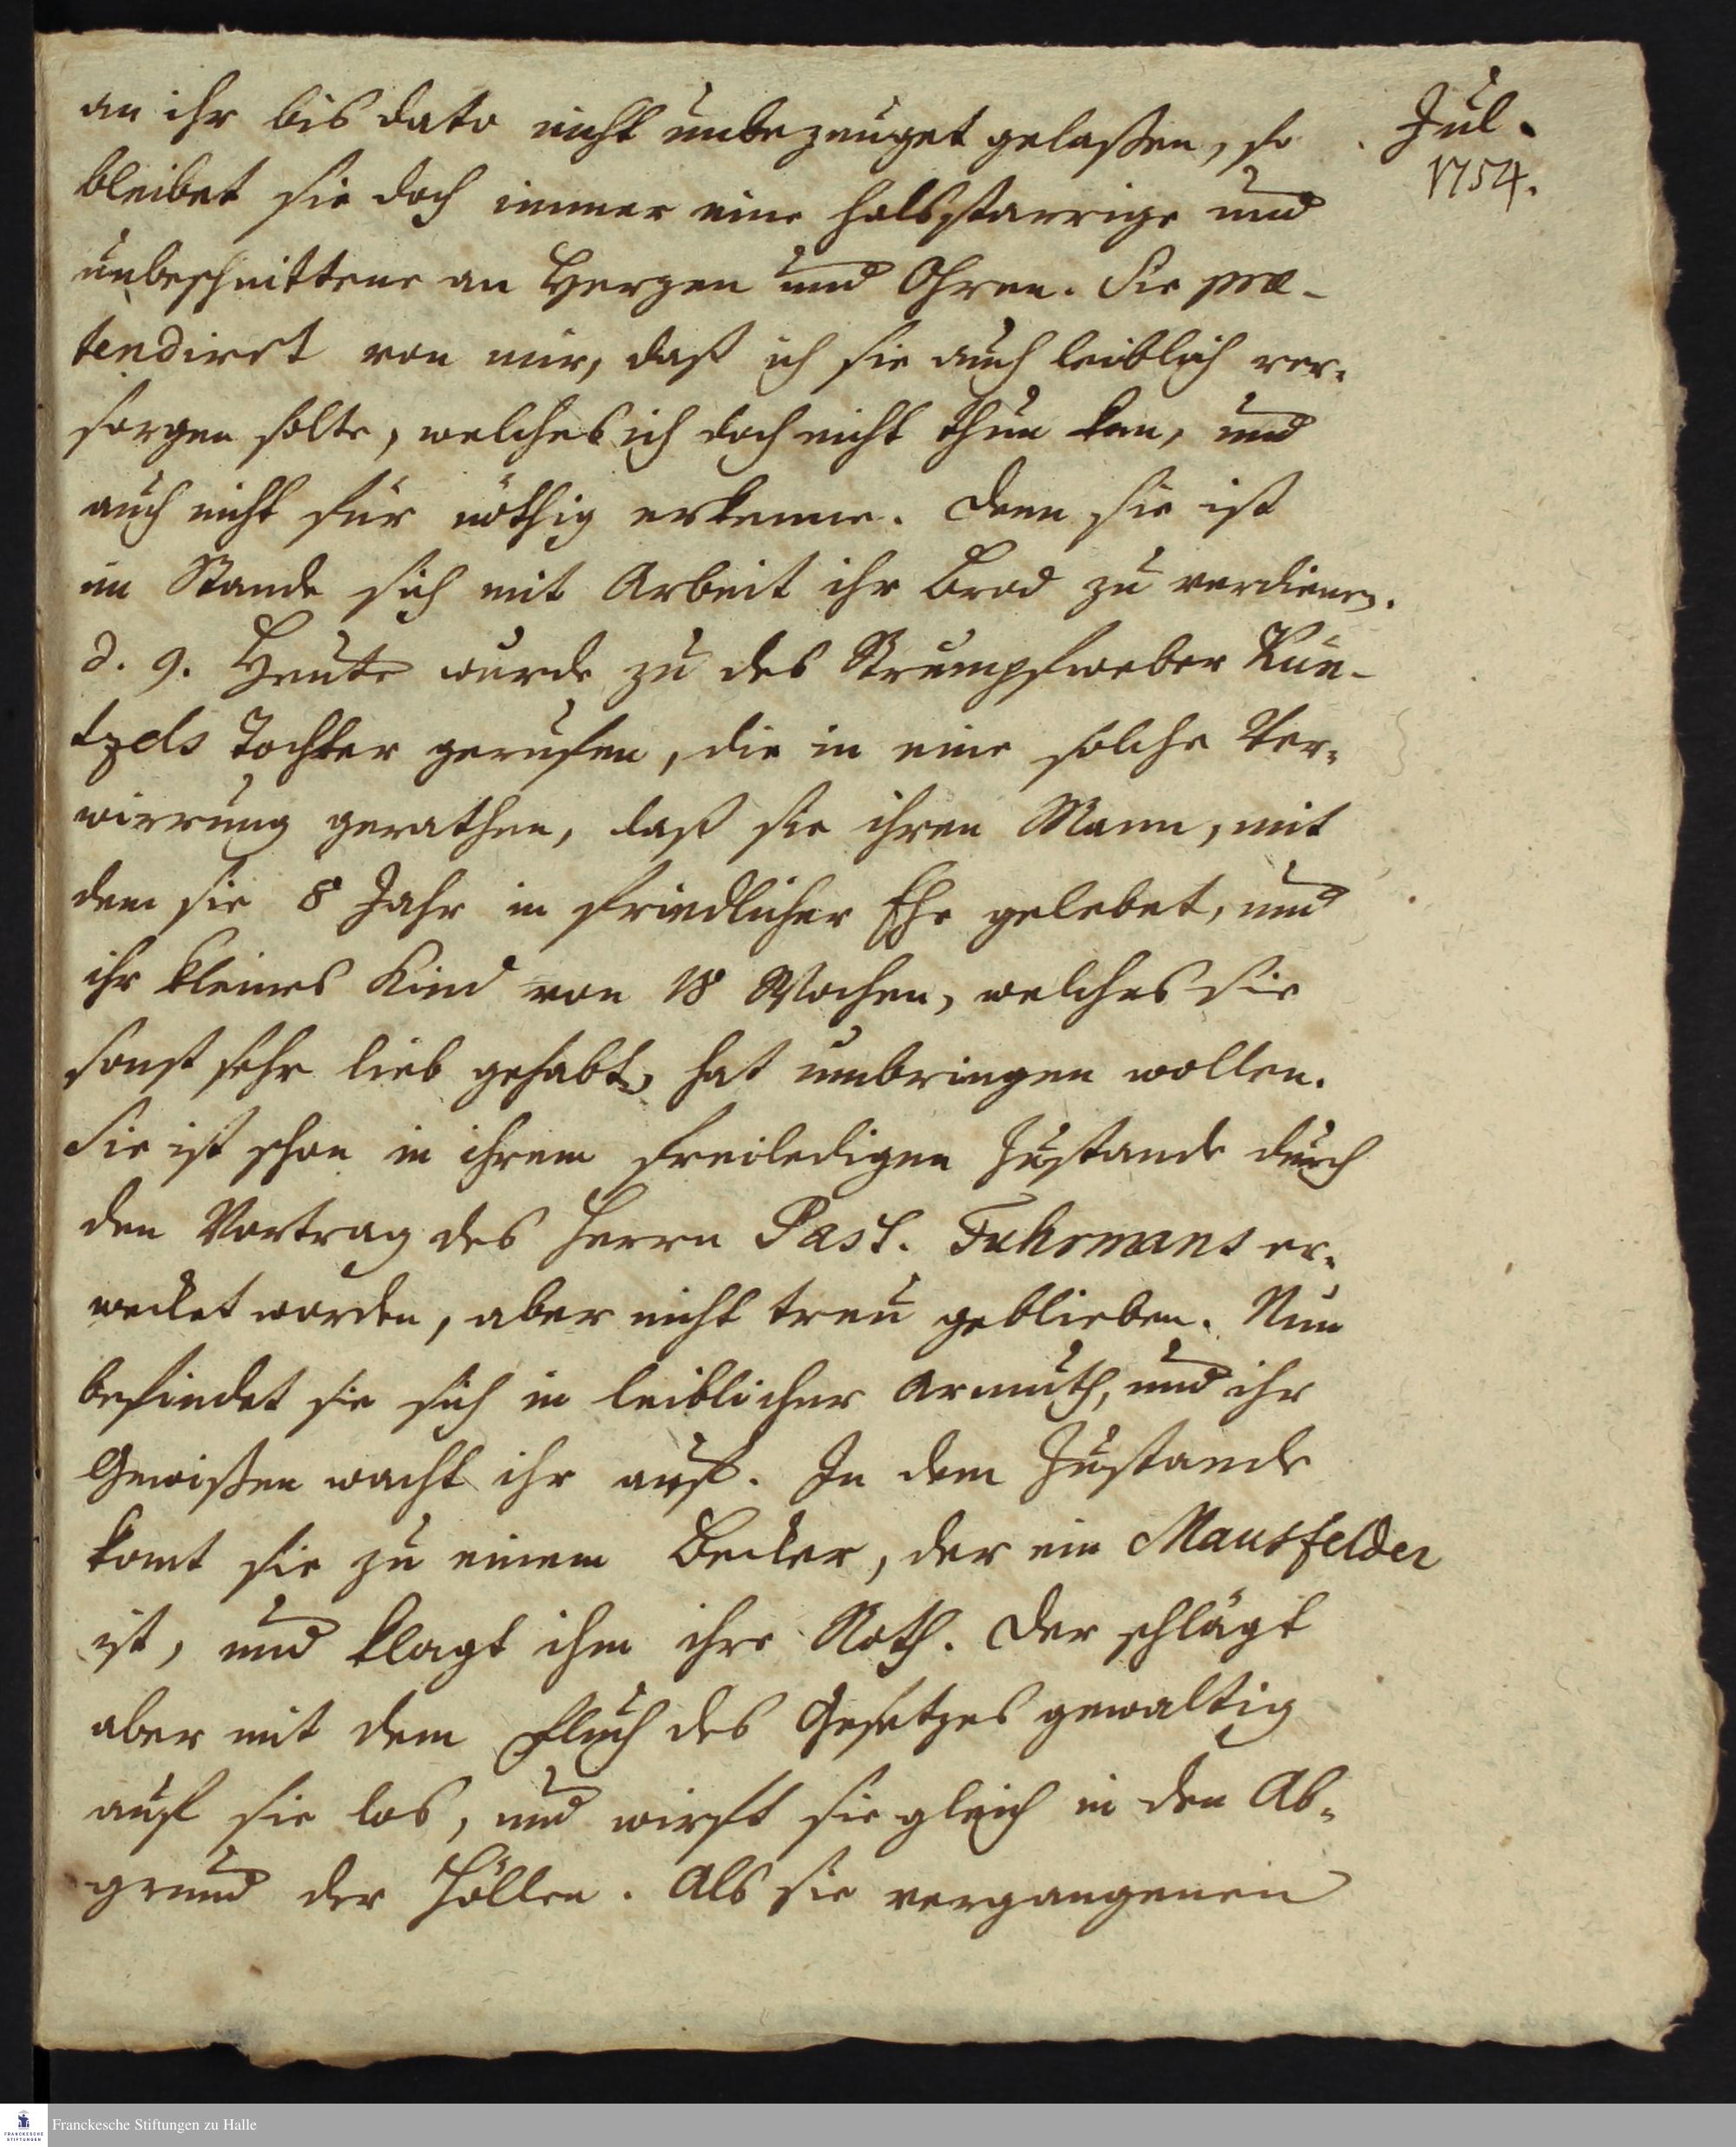 an ihr bis dato nicht unbezeuget gelaßen, so
Jul.
1754.
bleibet sie doch immer eine halsstarrige und
unbeschnittene an Herzen und Ohren. Sie præ-
tendiret von mir, daß ich sie auch leiblich ver-
sorgen solte, welches ich doch nicht thun kan, und
auch nicht für nöthig erkenne. Denn sie ist
im Stande sich mit Arbeit ihr Brod zu verdienen.
d. 9. Heute wurde zu des Strumpfweber Kün-
tzels Tochter gerufen, die in eine solche Ver-
wirrung gerathen, daß sie ihren Mann, mit
dem sie 8 Jahr in friedlicher Ehe gelebet, und
ihr kleines Kind von 18 Wochen, welches sie
sonst sehr lieb gehabt, hat umbringen wollen.
Sie ist schon in ihrem freiledigen Zustande durch
den Vortrag des Herrn Past. Fuhrmans er-
wecket worden, aber nicht treu geblieben. Nun
befindet sie sich in leiblicher Armuth, und ihr
Gewißen wacht ihr auf. In dem Zustande
komt sie zu einem Becker, der ein Mansfelder
ist, und klagt ihm ihre Noth. Der schlägt
aber mit dem Fluch des Gesetzes gewaltig
auf sie los, und wirft sie gleich in den Ab-
grund der Höllen. Als sie vergangenen
Franckesche Stiftungen zu Halle
FRANCKESCHE
STIFTUNGEN